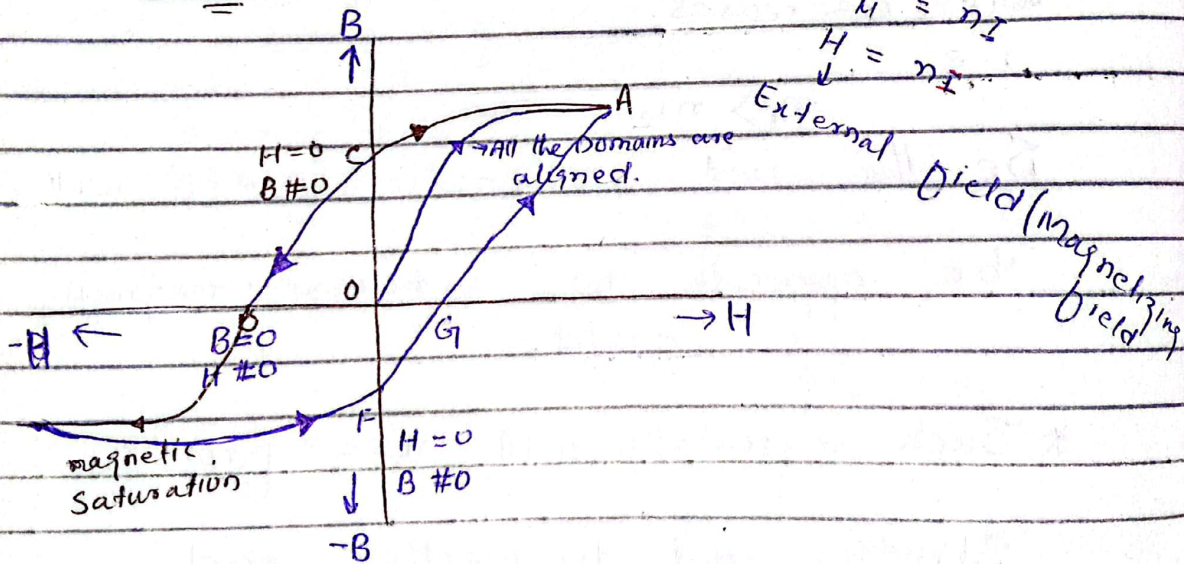 B
H = nI
H = nI
External Field (Magnetizing
Field
A
→All the Domains are
aligned.
H=0
C
B≠0
O
→ H
-H ←
D
B=0
H≠0
G
F
magnetic
Saturation
H = 0
B ≠0
-B